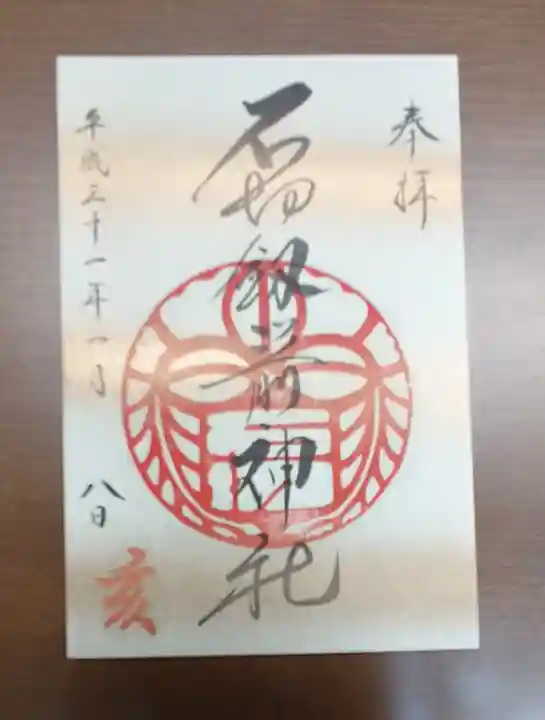 奉拝
石切劔箭神社
平成三十一年一月
八日
亥